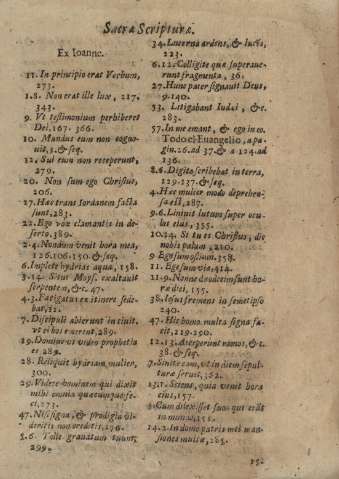 Sacræ Scripturæ.
Ex Ioanne.
1.1. In principio erat Verbum,
273.
1.8. Non erat ille lux, 217.
343.
9. Vt testimonium perhiberet
Dei. 167. 366.
10. Mundus eum non cognouit,
& seq.
12. Sui eum non receperunt,
279.
20. Non sum ego Christus,
206.
27. Hæc trans Iordanem facta
sunt, 283.
22. Ego vox clamantis in deserto,
389.
2.4. Nondum venit hora mea,
126. 106. 150. & seq.
6. Implete hydrias aqua, 158.
3.14. Sicut Moyses exaltauit
serpentem, & c. 47.
4.3. Fatigatus ex itinere sedebat,
12.
7. Discipuli abierunt in ciuit.
289.
19. Domine vt video propheta
es 282.
28. Reliquit hydriam mulier,
300.
29. Videte hominem qui dixit
mihi omnia quæcunque feci,
273.
47. Nisi signa, & prodigia videritis
non creditis, 206.
5.6. Tolle grauatum tuum,
299.
34. Lucerna ardens, & lucens,
223.
6.12. Colligite quæ superauerunt
fragmenta, 36.
27. Hunc pater signauit Deus,
9. 140.
53. Litigabant Iudæi, & c.
283.
57. In me manet, & ego in eo.
Todo el Euangelio, a pagin.
26. ad 37. & a 124. ad
136.
8.6. Digito scribebat in terra,
129. 137. & seq.
4. Hæc mulier modo deprehensa
est, 287.
9.6. Liniuit lutum super oculos
eius, 355.
10.24. Si tu es Christus, dic
nobis palam, 210.
9 Ego sum ostium. 358.
11. Ego sum via, 414.
11.9. Nonne duodecim sunt horæ
diei, 155.
38. Iesus fremens in semetipso
240.
47. Hic homo multa signa facit,
219. 250.
12.13. Acceperunt ramos, & c.
38. & seq.
7. Sinite eam, vt in diem sepulturæ
seruet, 362.
13.1. Sciens, quia venit hora
eius, 157.
Cum dilexisset suos qui erant
in mundo, 155.
14.2. In domo patris mei mansiones
multæ, 285.